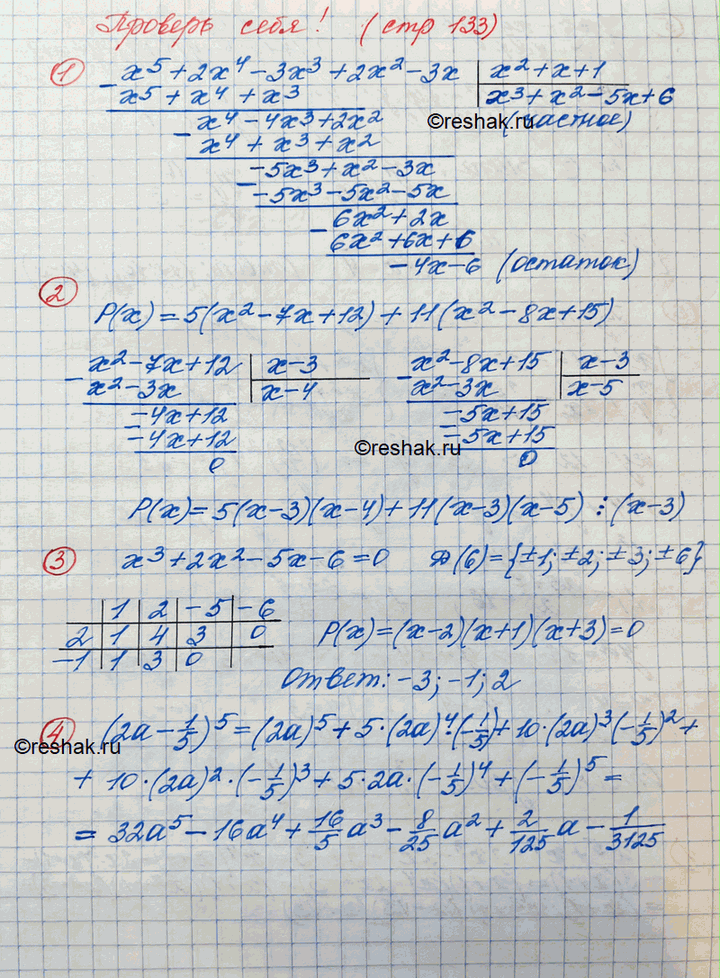 Проверь себя! (стр 133)
1 x⁵+2x⁴-3x³+2x²-3x | x²+x+1
- x⁵+x⁴+x³ | x³+x²-5x+6
(частное)
©reshak.ru
- x⁴-4x³+2x²
x⁴+x³+x²
- -5x³+x²-3x
-5x³-5x²-5x
- 6x²+2x
6x²+6x+6
-4x-6 (остаток)
2
P(x)=5(x²-7x+12)+11(x²-8x+15)
- x²-7x+12 | x-3 - x²-8x+15 | x-3
x²-3x | x-4 x²-3x | x-5
- -4x+12 - -5x+15
-4x+12 -5x+15
©reshak.ru
0 0
P(x)=5(x-3)(x-4)+11(x-3)(x-5) ⋮ (x-3)
3 x³+2x²-5x-6=0 Д(6)={±1;±2;±3;±6}
| 1 | 2 | -5 | -6
2 | 1 | 4 | 3 | 0 P(x)=(x-2)(x+1)(x+3)=0
-1 | 1 | 3 | 0
Ответ: -3; -1; 2
4 (2a-1/5)⁵=(2a)⁵+5·(2a)⁴·(-1/5)+10·(2a)³(-1/5)²+
©reshak.ru
+10·(2a)²·(-1/5)³+5·2a·(-1/5)⁴+(-1/5)⁵=
=32a⁵-16a⁴+16/5a³-8/25a²+2/125a-1/3125